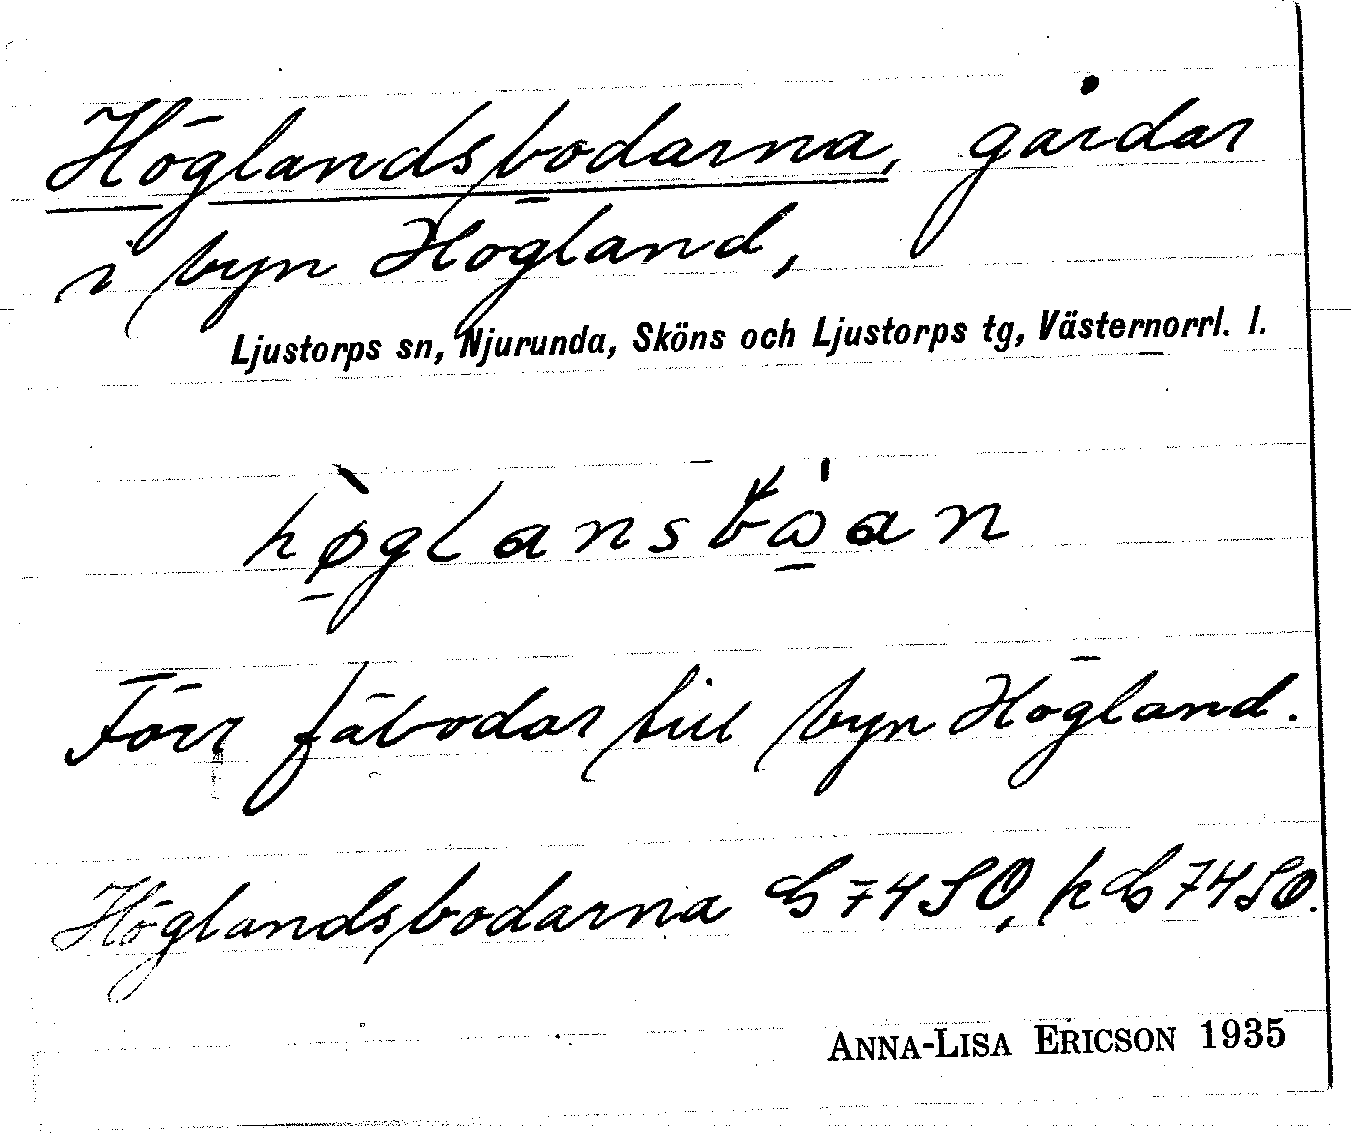 Höglandsbodarna, gårdar
i byn Högland,
Ljustorps sn, Njurunda, Sköns och Ljustorps tg, Västernorrl. l.
Förr fäbodar till byn Högland.
Höglandsbodarna G 7450, k G 7450.
ANNA-LISA ERICSON 1935